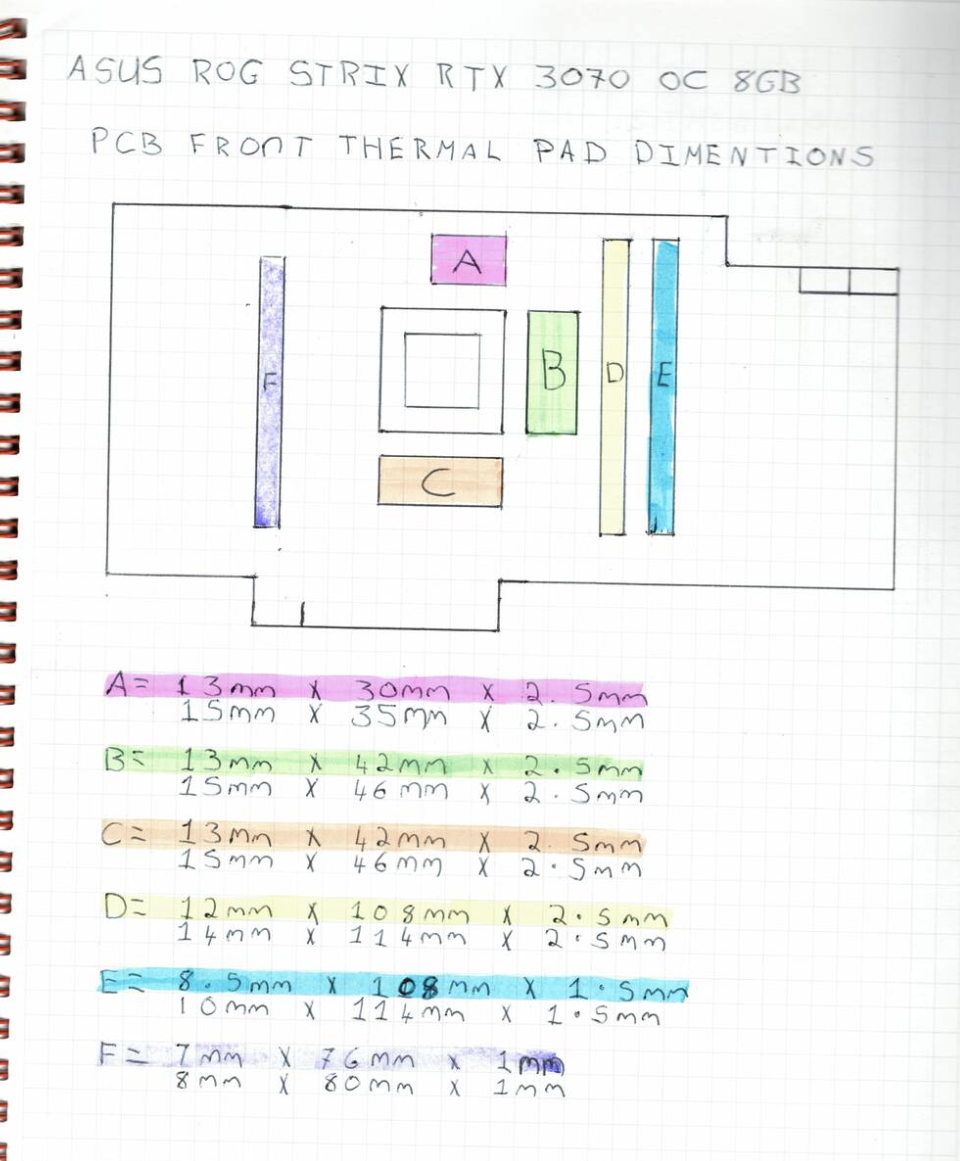 ASUS ROG STRIX RTX 3070 OC 8GB
PCB FRONT THERMAL PAD DIMENTIONS
A
B
C
D
E
F
A= 13mm X 30mm X 2.5mm
15mm X 35mm X 2.5mm
B= 13mm X 42mm X 2.5mm
15mm X 46mm X 2.5mm
C= 13mm X 42mm X 2.5mm
15mm X 46mm X 2.5mm
D= 12mm X 108mm X 2.5mm
14mm X 114mm X 2.5mm
E= 8.5mm X 108mm X 1.5mm
10mm X 114mm X 1.5mm
F= 7mm X 76mm X 1mm
8mm X 80mm X 1mm